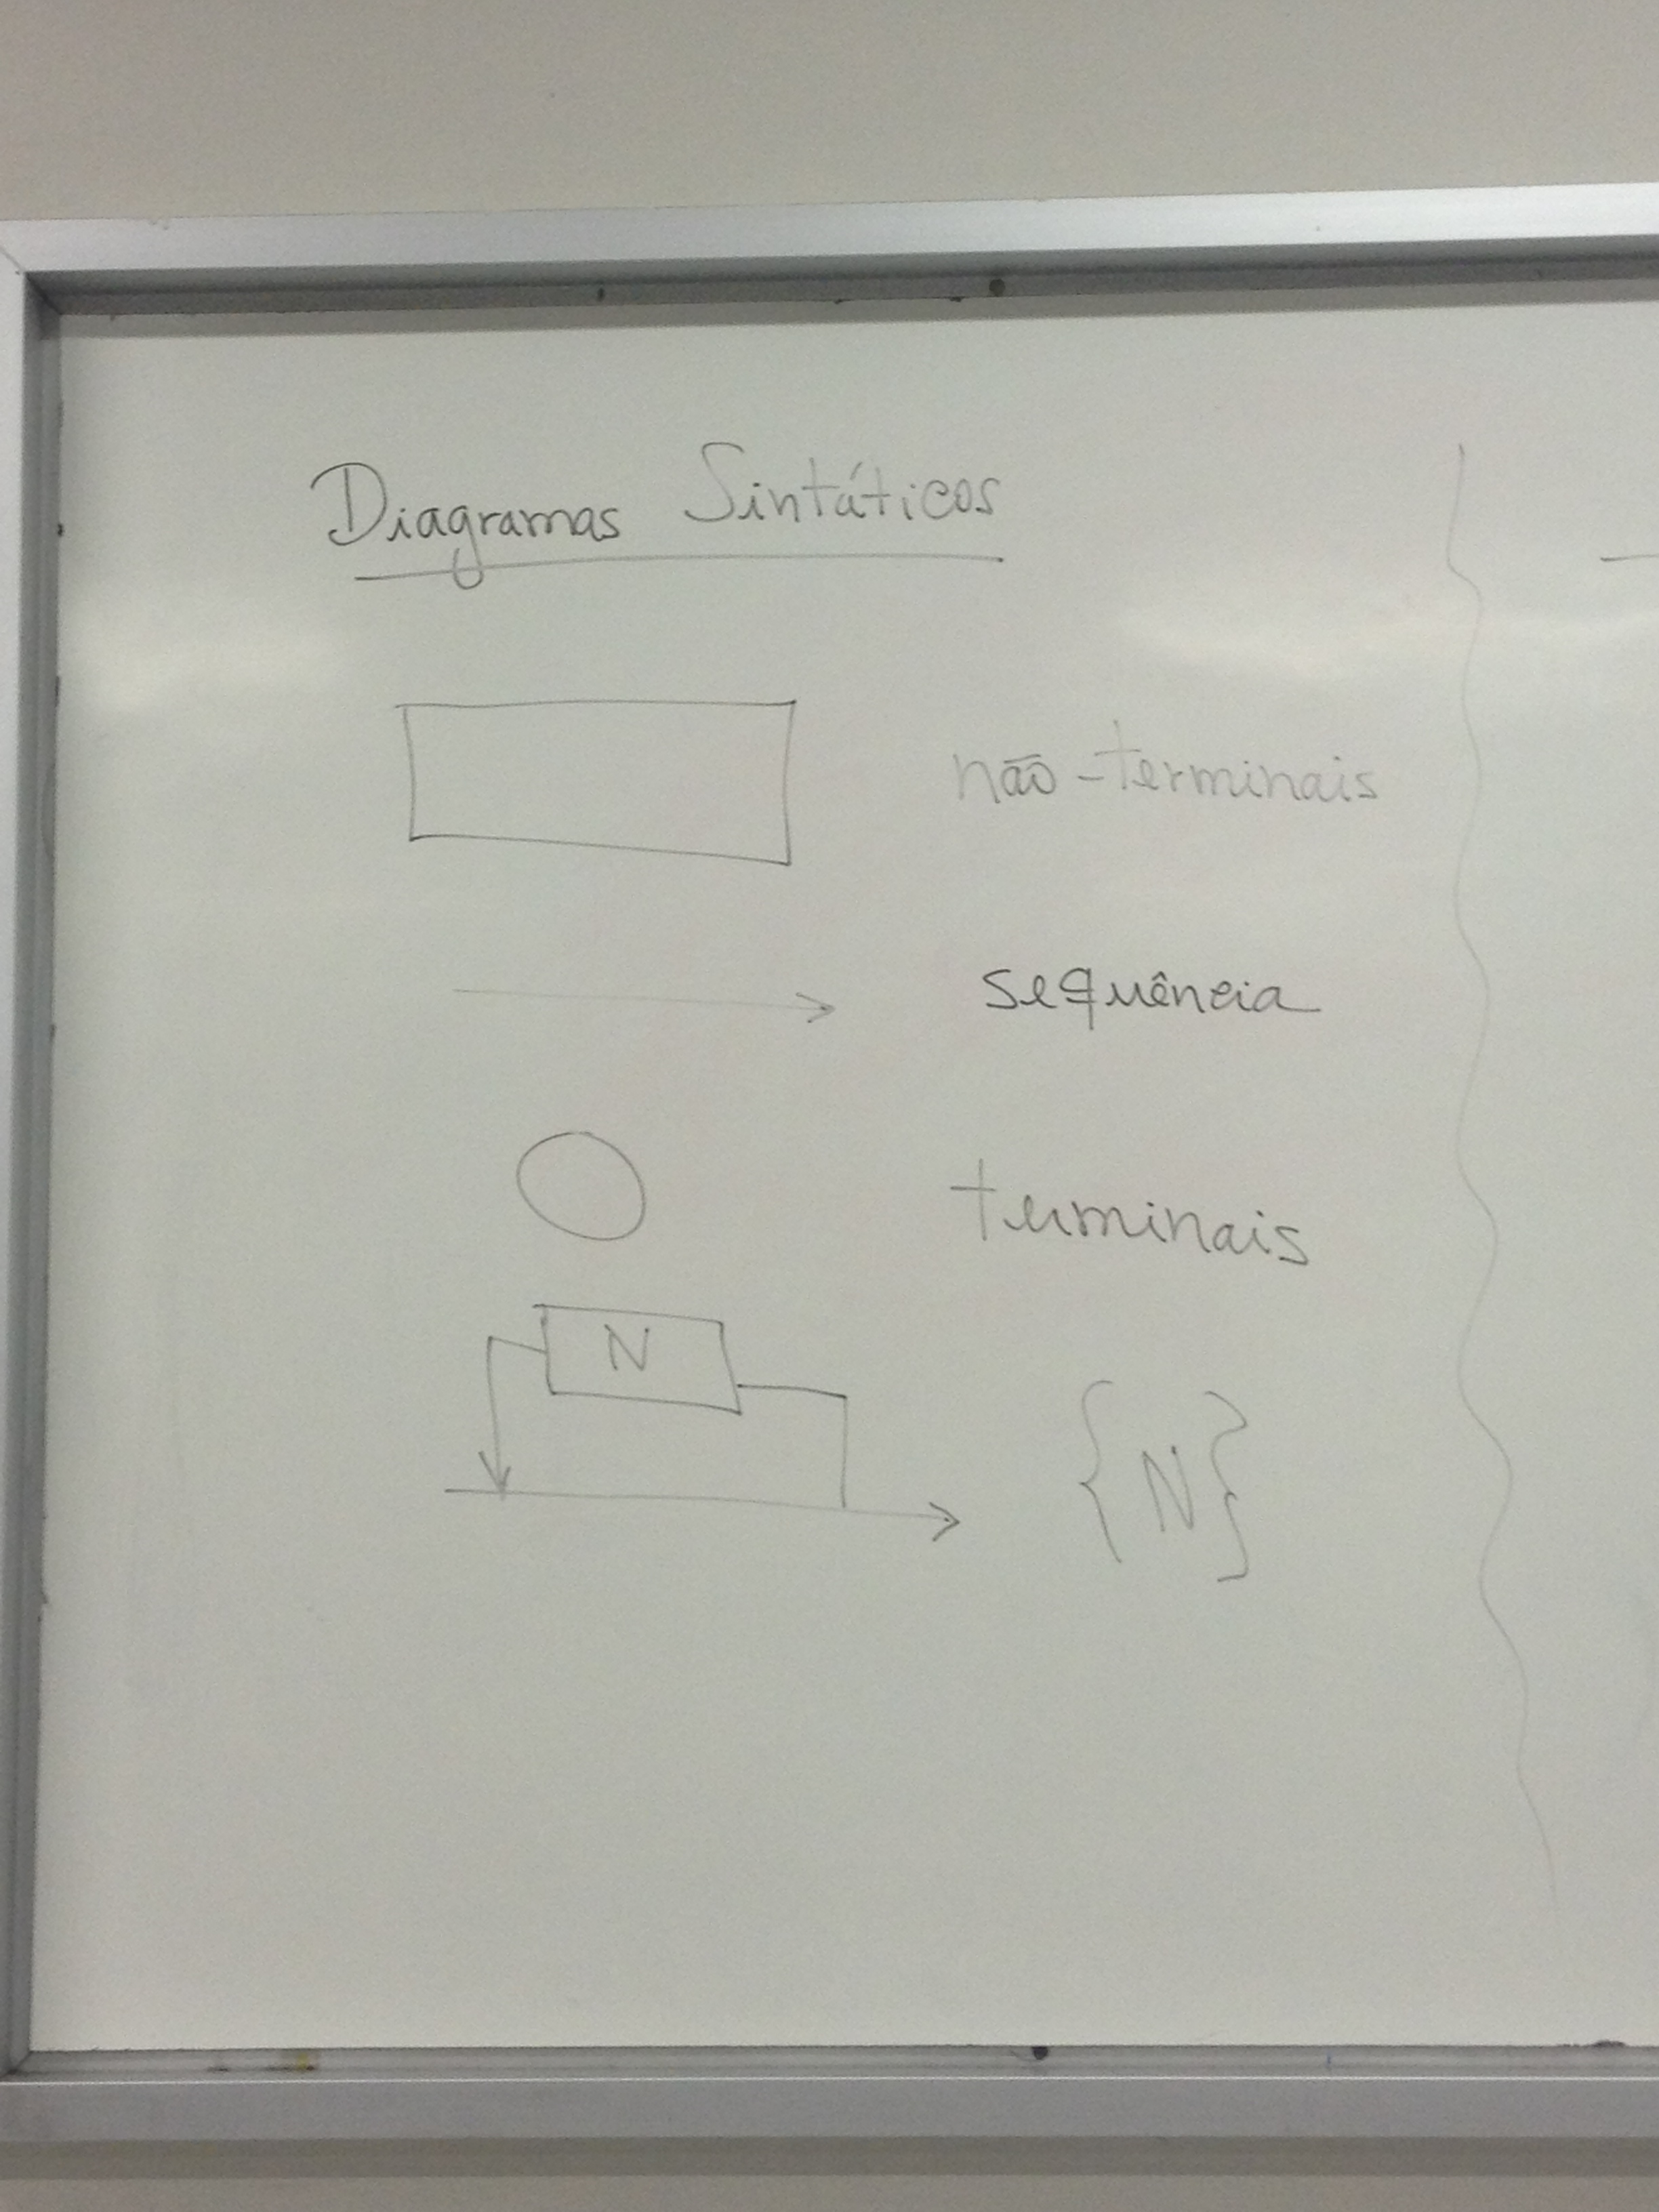 Diagramas Sintáticos
não-terminais
sequência
terminais
N
{N}